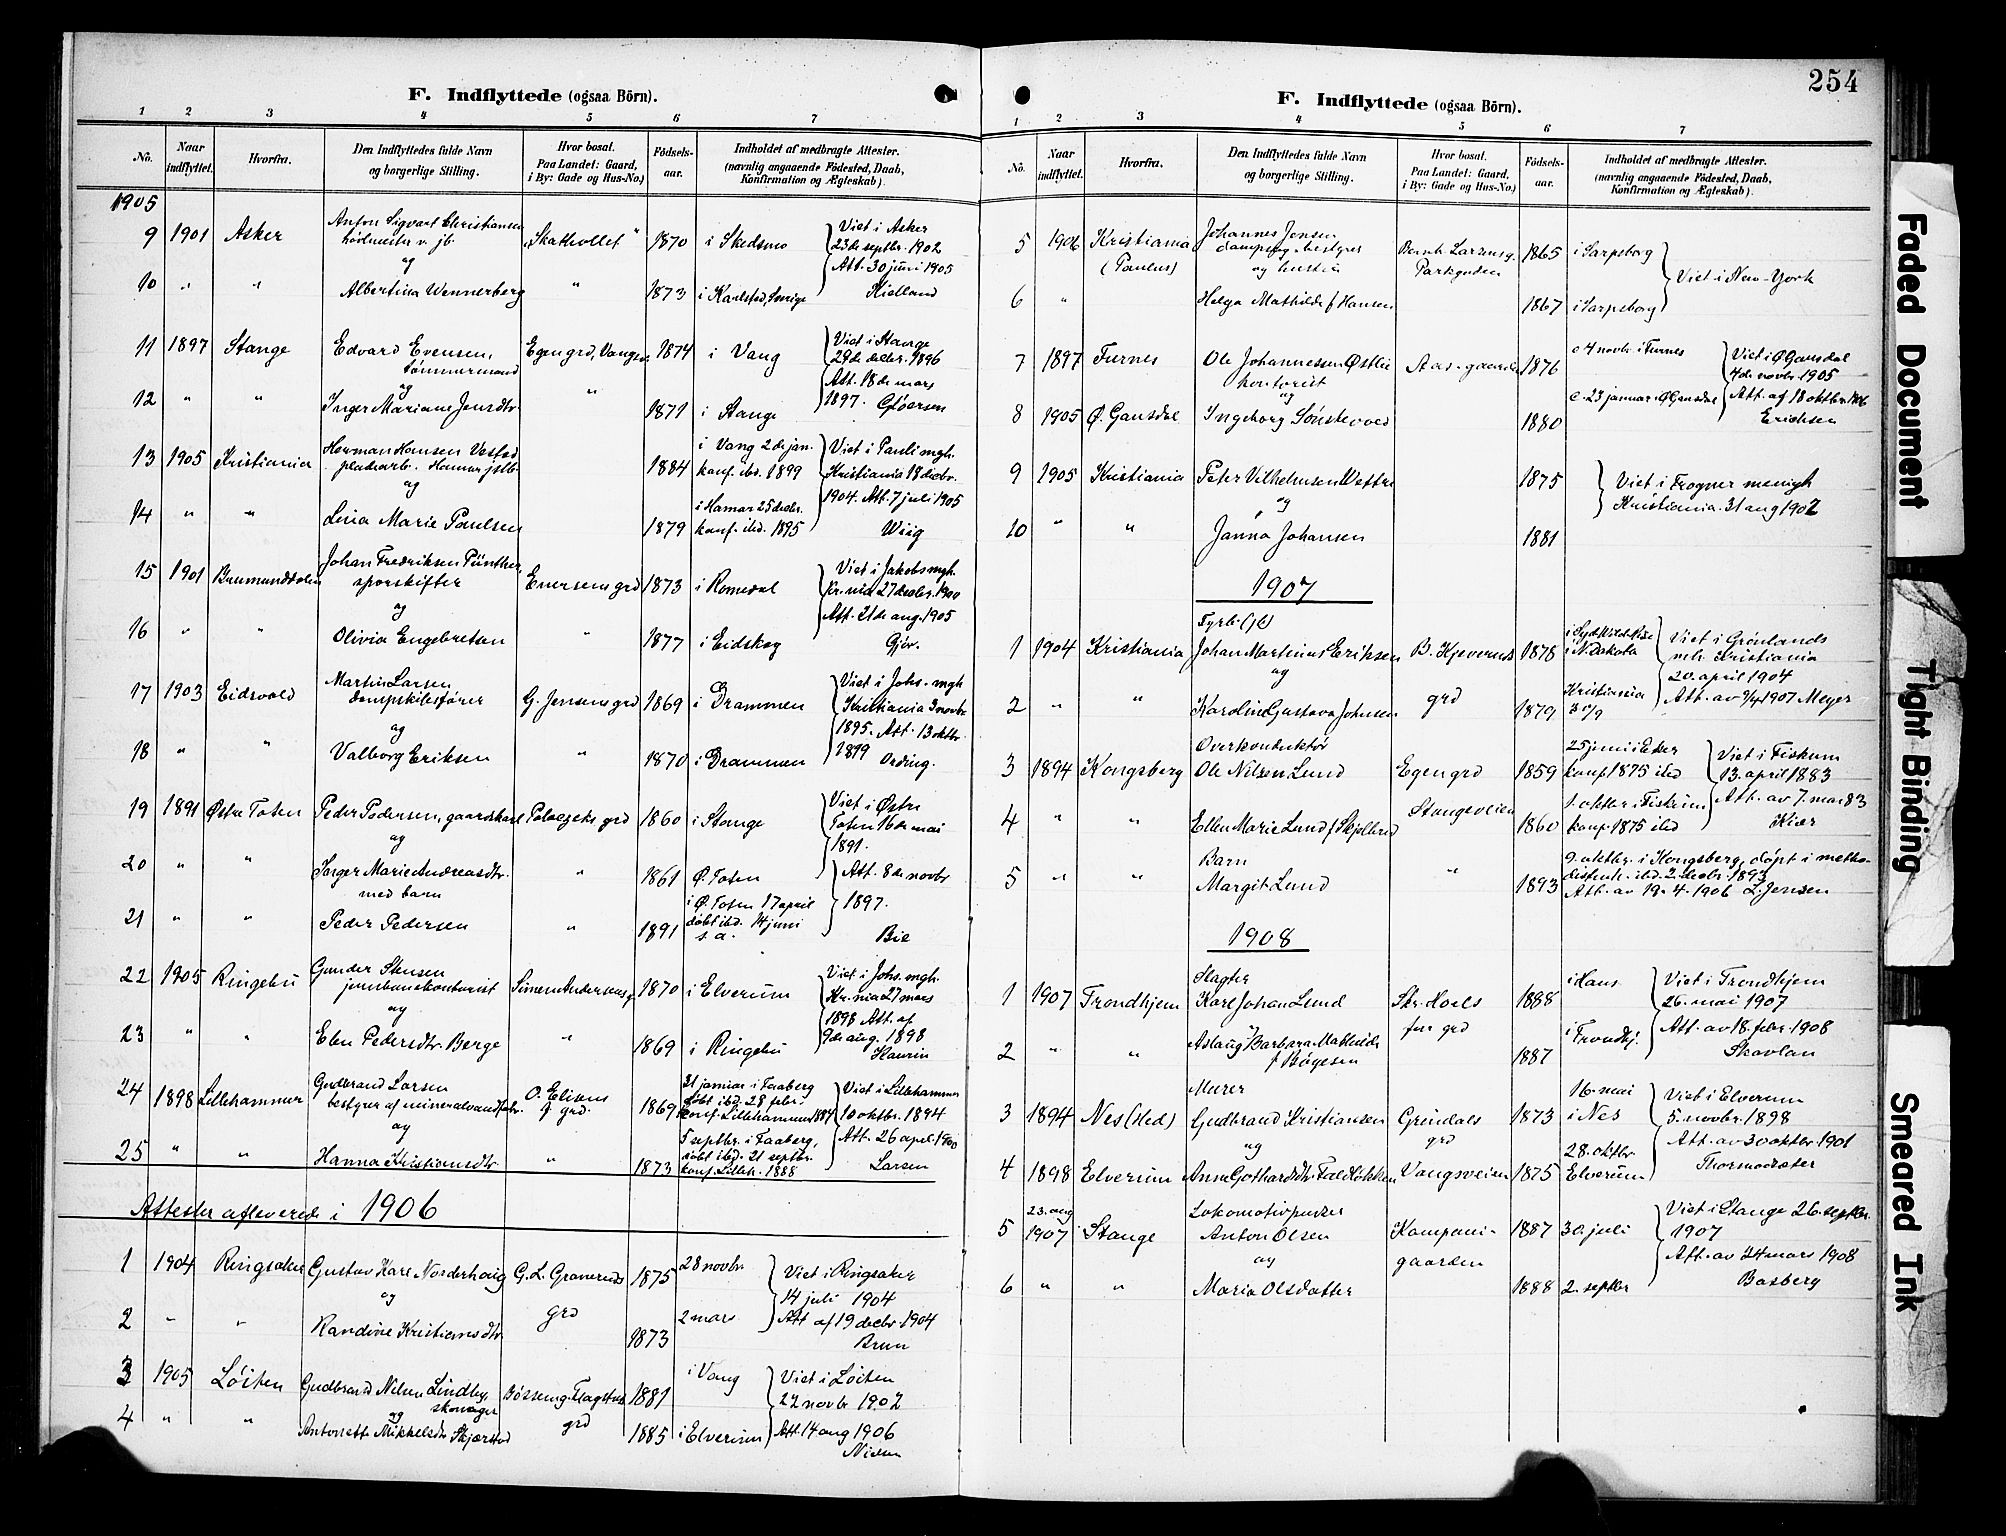 254
F. Indflyttede (ogsaa Börn).
1 2 3 4 5 6 7
No. Naar indflyttet. Hvorfra. Den Indflyttedes fulde Navn og borgerlige Stilling. Hvor bosat. Paa Landet: Gaard, i By: Gade og Hus-No.) Födsels-aar. Indholdet af medbragte Attester. (navnlig angaaende Födested, Daab, Konfirmation og Ægteskab).
1905
9 1901 Asker Anton Sigvart Christiansen v. jb. "Skathollet" 1870 i Skedsmo Viet i Asker
og 23de septbr. 1902
Att. 30 juni 1905
10 " " Albertina Wennerberg " 1873 i Karlstad, Sverige Kielland
11 1897 Stange Edvard Evensen, Egen grd, Vangsv. 1874 i Vang Viet i Stange
tømmermand 29de decbr. 1896
og Att. 18de mars
12 " " Inger Mariane Jensdtr. " 1871 i Stange 1897. Gløersen
13 1905 Kristiania Herman Hansen i Vang 2de jan. Viet i Pauli mgh.
pladsarb. Hamar jstb. 1884 konf. ibd. 1899 Kristiania 18 decbr.
og 1904. Att. 7 juli 1905
14 " " Lina Marie Paulsen 1879 i Hamar 25 decbr. konf. ibd. 1895 Wiig
15 1901 Brumunddalen Johan Fredriksen Pünther, Eversens grd 1873 i Romedal Viet i Jakobs mgh.
sporskifter Kr.nia 27 decbr. 1900
og Att. 21de aug. 1905
16 " " Olivia Engebretsen " 1877 i Eidskog Gjør.
17 1903 Eidsvold Martin Larsen G. Jensens grd 1869 i Drammen Viet i Johs. mgh
dampskibsfører Kristiania 3 novbr
og 1895. Att. 13 oktbr.
18 " " Valborg Eriksen " 1870 i Drammen 1899 Ording.
19 1891 Østre Toten Peder Pedersen, gaardskarl Polaczeks grd 1860 i Stange Viet i Østre
og Toten 16de mai
1891.
20 " " Inger Marie Andreasdtr. " 1861 Ø. Toten Att. 8de novbr
med barn 1897.
21 " " Peder Pedersen " 1891 i Ø. Toten 17 april døbt ibd. 14 juni s.a. Bie
22 1905 Ringebu Gunder Stensen Simen Andersens g. 1870 i Elverum Viet i Johs. mgh.
jernbanekontorist Kr.nia 27 mars
og 1898 Att. af
23 " " Elen Pedersdtr. Berge " 1869 i Ringebu 9de aug. 1898
Kaurin
24 1898 Lillehammer Gudbrand Larsen O. Eliens grd. 1869 21 januar i Faaberg døbt ibd. 28 febr. konf. Lillehammer 1884 Viet i Lillehammer
bestyrer af mineralvandfabr. 10 oktbr. 1894
og Att. 26 april 1900
25 " " Hanna Kristiansdtr. " 1873 5 septbr. i Faaberg, døbt ibd. 21 septbr. konf. Lilleh. 1888 Larsen
Attester afleverede i 1906
1 1904 Ringsaker Gustav Karl Norderhoug G. L. Graneruds 1875 28 novbr Viet i Ringsaker
og grd 14 juli 1904
2 " " Randine Kristiansdtr. 1873 2 mars Att af 19 decbr 1904
Brun
3 1905 Løiten Gudbrand Nilsen Lindby, 1881 i Vang Viet i Løiten
og skomager 22 novbr 1902
4 " " Antonette Mikkelsdtr. Skjærstad grd 1885 i Elverum Att. 14 aug 1906
Nielsen
F. Indflyttede (ogsaa Börn).
1 2 3 4 5 6 7
No. Naar indflyttet. Hvorfra. Den Indflyttedes fulde Navn og borgerlige Stilling. Hvor bosat. Paa Landet: Gaard, i By: Gade og Hus-No.) Födsels-aar. Indholdet af medbragte Attester. (navnlig angaaende Födested, Daab, Konfirmation og Ægteskab).
5 1906 Kristiania Johannes Jensen Bernh. Larsensg. 1865 i Sarpsborg
(Paulus) dampsag-bestyrer Parkgaden
og hustru Viet i New-York
6 " Helga Mathilde f Hansen 1867 i Sarpsborg
7 1897 Furnes Ole Johannesen Østlie Aas-gaarden 1876 4 novbr. i Furnes Viet i Ø Gausdal
kontorist 4de novbr 1905
og Att. af 18 oktbr. 1906
8 1905 Ø. Gausdal Ingeborg Sønstevold 1880 23 januar Ø Gausdal Erichsen
9 1905 Kristiania Peter Vilhelmsen Wettre 1875 Viet i Frogner menigh
og Kristiania. 31 aug 1902
10 " " Janna Johansen 1881
1907
Fyrb.
1 1904 Kristiania Johan Martinius Eriksen B. Kjeveruds 1878 i N. Dakota Viet i Grønlands
og mh. Kristiania
20. april 1904
2 " " Karoline Gustava Johnsen grd 1879 Kristiania Att. av 1907 Meyer
Overkonduktør
3 1894 Kongsberg Ole Nilsen Lund Egen grd 1859 25 juni i Eker konf. 1875 ibd Viet i Fiskum
13. april 1883
4 " " Ellen Marie Lund f Skjellerud Stangeveien 1860 1. oktbr i Fiskum konf. 1875 ibd Att. av 7. mai 83
Kiær
Barn
5 " " Margit Lund " 1893 9. oktbr. i Kongsberg, døpt i metho-
distmh. ibd. 2. decbr. 1893
Att. av 19. 4. 1906 L. Jensen
1908
Slagter
1 1907 Trondhjem Karl Johan Lund Skr. Hoels 1888 i Hans Viet i Trondhjem
grd 26. mai 1907
2 " " Aslaug Barbara Mathilde 1887 i Trondhj. Att. av 18. febr. 1908
f Bøgesen Skavlan
Murer
3 1894 Nes (Hed) Gudbrand Kristiansen Grundals 1873 16. mai i Nes Viet i Elverum
og grd 5. novbr. 1898
4 1898 Elverum Anne Gothardsdtr. Faldløkken Vangsveien 1875 28. oktbr Elverum Att. av 30 oktbr. 1901
Thormodsæter
23. aug Lokomotivpudser
5 1907 Stange Anton Olsen Kompani- 1887 30. juli Viet i Stange 26. septbr.
og gaarden 1907
Att. av 24 mars 1908
6 " " Maria Olsdatter 1888 2. septbr Basberg
Faded Document
Tight Binding
Smeared Ink